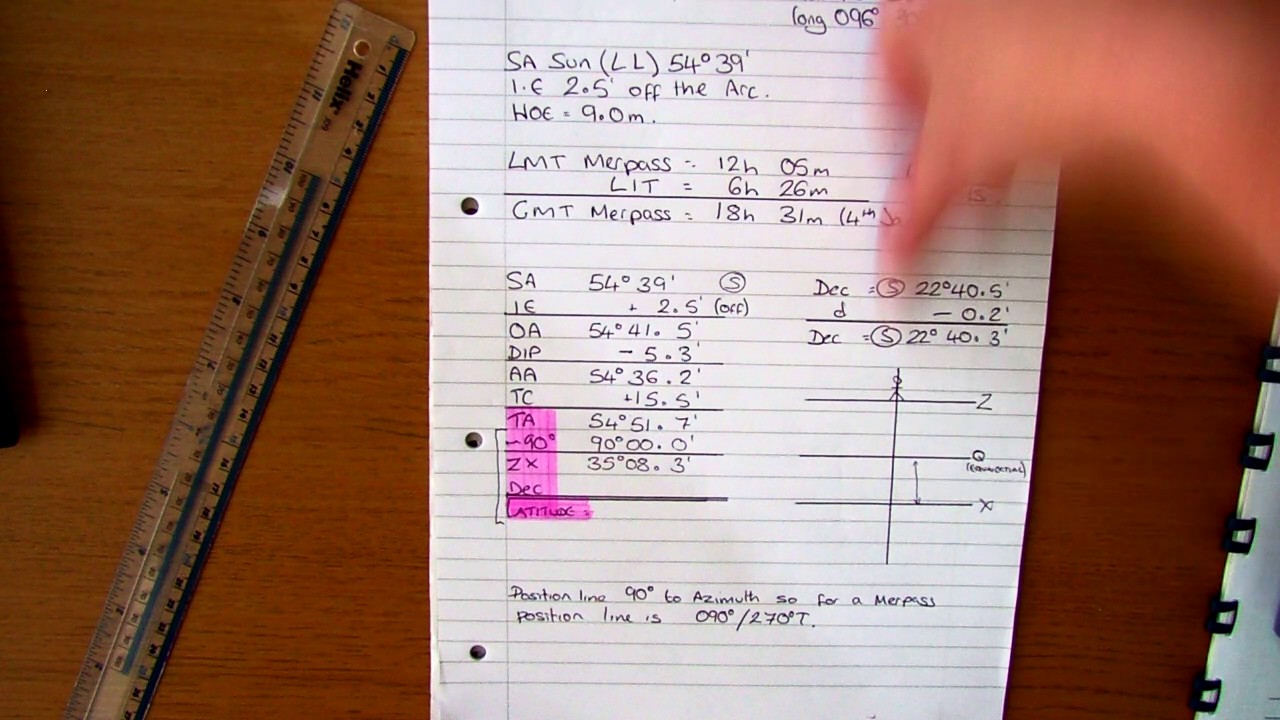 long 096°
SA Sun (LL) 54° 39'
I.E 2.5' off the Arc.
HOE = 9.0m.
LMT Merpass = 12h 05m
LIT = 6h 26m
GMT Merpass = 18h 31m (4th
SA 54° 39' (S)
IE + 2.5' (off)
OA 54° 41. 5'
DIP - 5.3'
AA 54° 36.2'
TC +15.5'
TA 54° 51.7'
-90° 90°00.0'
ZX 35°08.3'
Dec
LATITUDE =
Dec = (S) 22°40.5'
d - 0.2'
Dec = (S) 22° 40.3'
Z
Q
(EQUINOCTIAL)
X
Position line 90° to Azimuth so for a Merpass
position line is 090°/270°T.
Helix